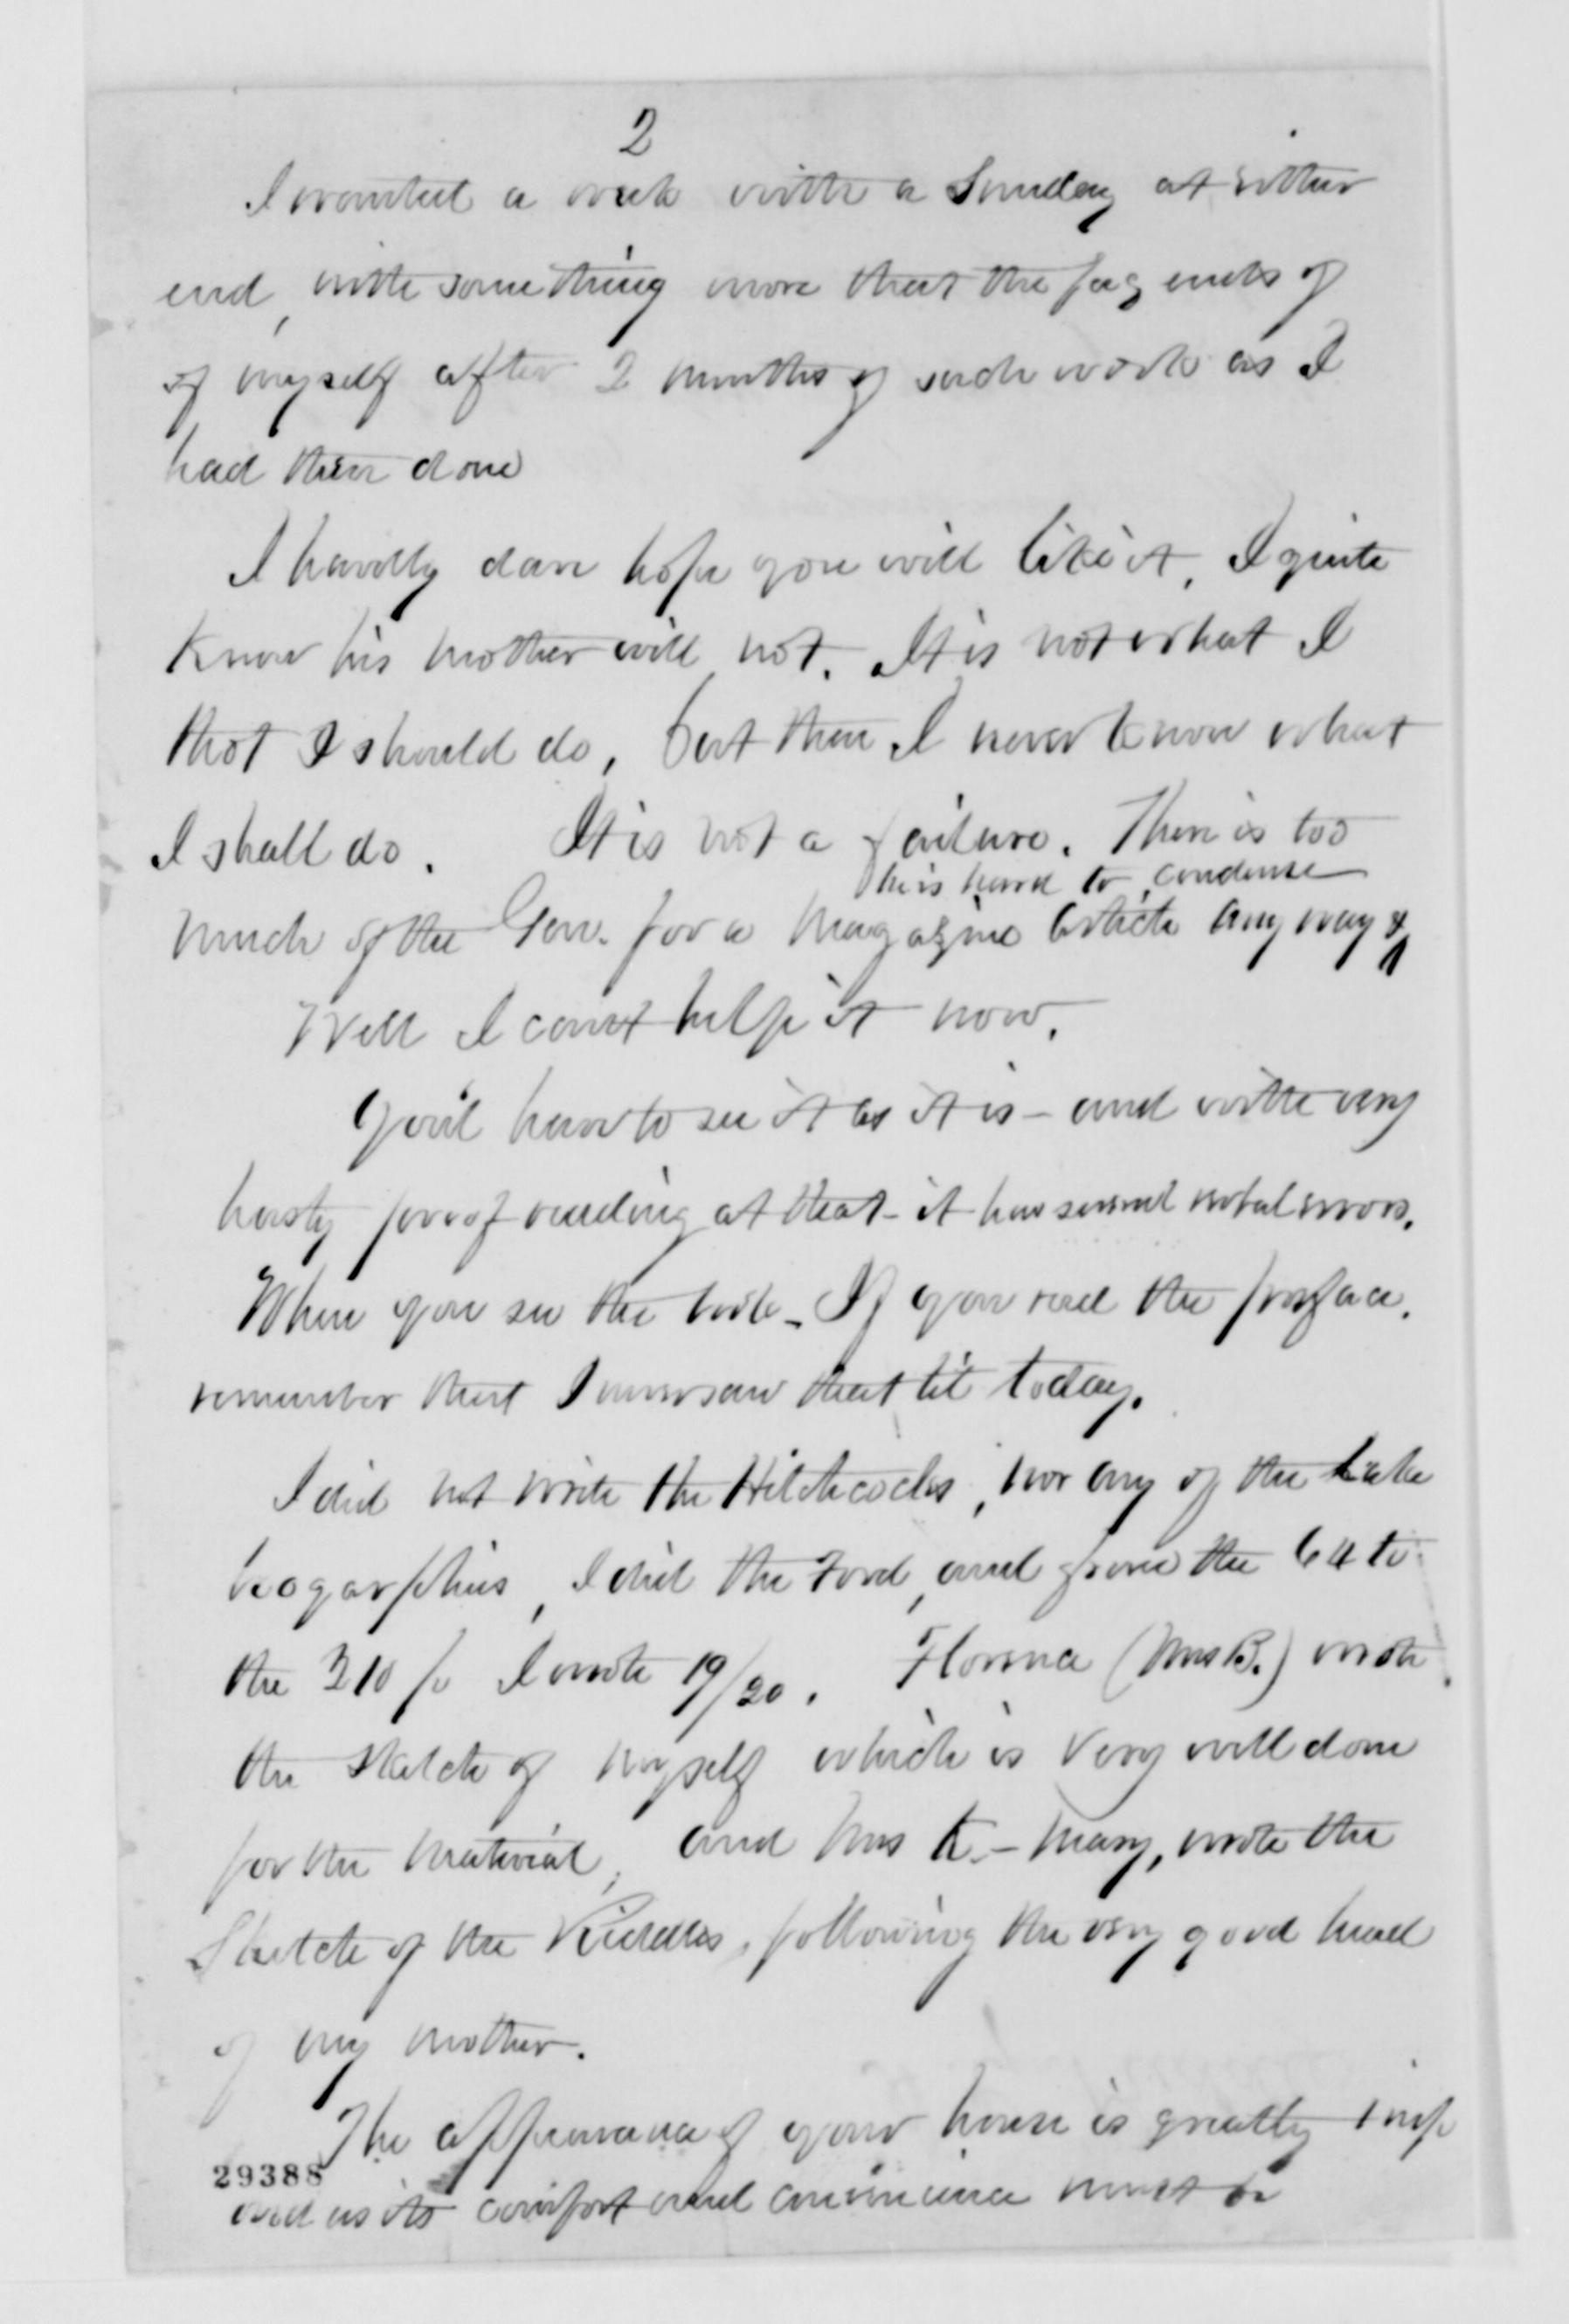 2
I wanted a week with a Sunday at either
end, with something more that the fag ends of
of myself after 2 months of such work as I
had then done
I hardly dare hope you will like it, I quite
know his mother will not. It is not what I
thot I should do, but then I never know what
I shall do. It is not a failure. There is too
he is hard to condense
much of the Gen. for a magazine article any way &
Well I cant help it now.
You'l have to see it as it is – and with very
hasty proof reading at that – it has several verbal errors.
When you see the book – If you read the preface,
remember that I never saw that til today.
I did not write the Hitchcocks, nor any of the Lake
biogarphies, I did the Ford, and from the 64 to
the 310 p I wrote 19/20. Florence (Mrs B.) wrote
the sketch of myself which is very well done
for the material, and Mrs K – Mary, wrote the
Sketch of the Riddles, following the very good head
of my mother.
The appearance of your house is greatly imp
29388
oved as its comfort and convenience must be